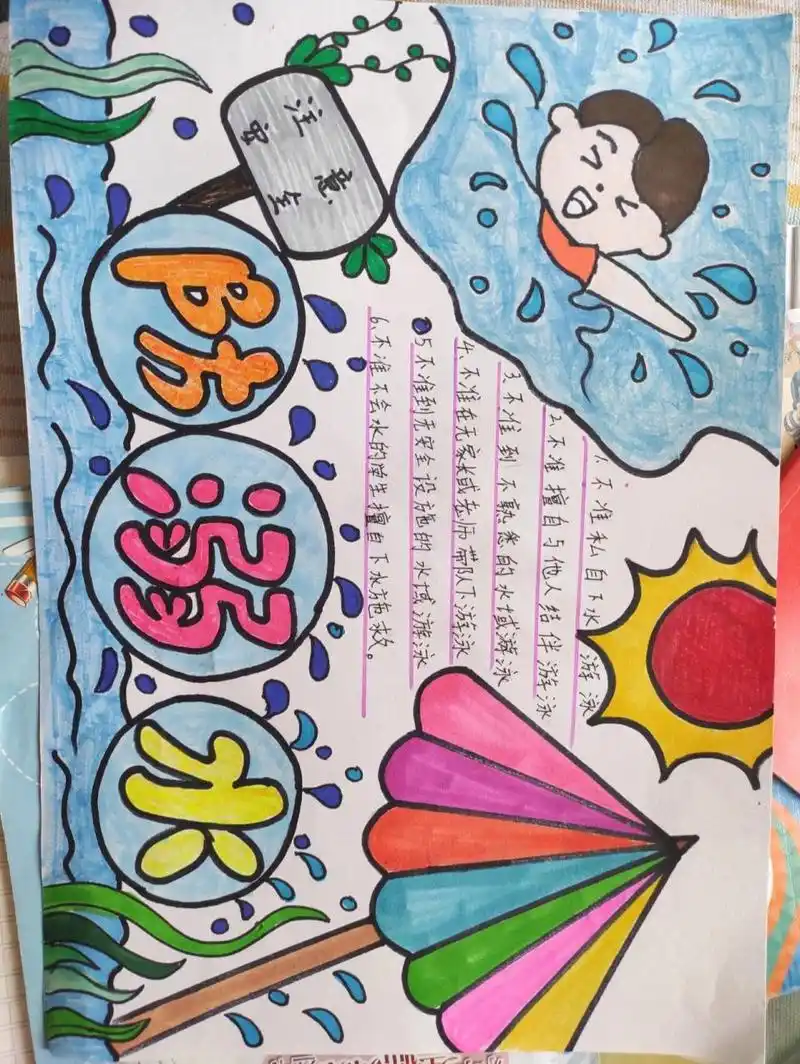 1、不准私自下水游泳
2、不准擅自与他人结伴游泳
3、不准到不熟悉的水域游泳
4、不准在无家长或老师带队下游泳
5、不准到无安全设施的水域游泳
6、不准不会水的学生擅自下水施救。
注意
安全
防溺水